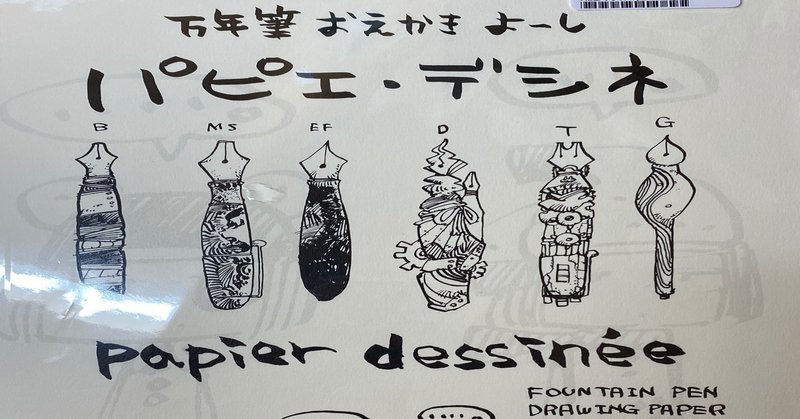 万年筆 おえかき よーし
パピエ・デシネ
B MS EF D T G
papier dessinée
FOUNTAIN PEN
DRAWING PAPER